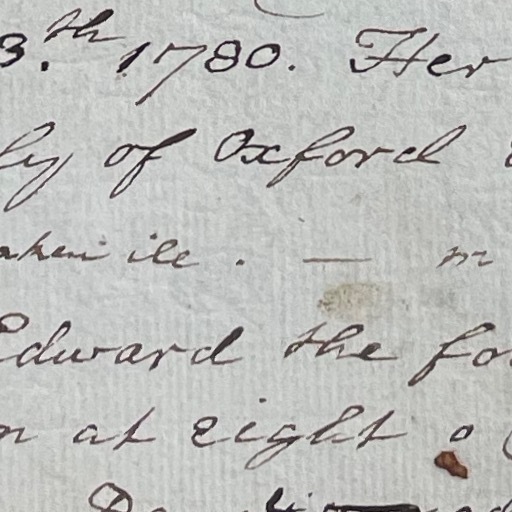 3.th 1780. Her
ly of Oxford
aken ile . — m
Edward the fo
n at eight o